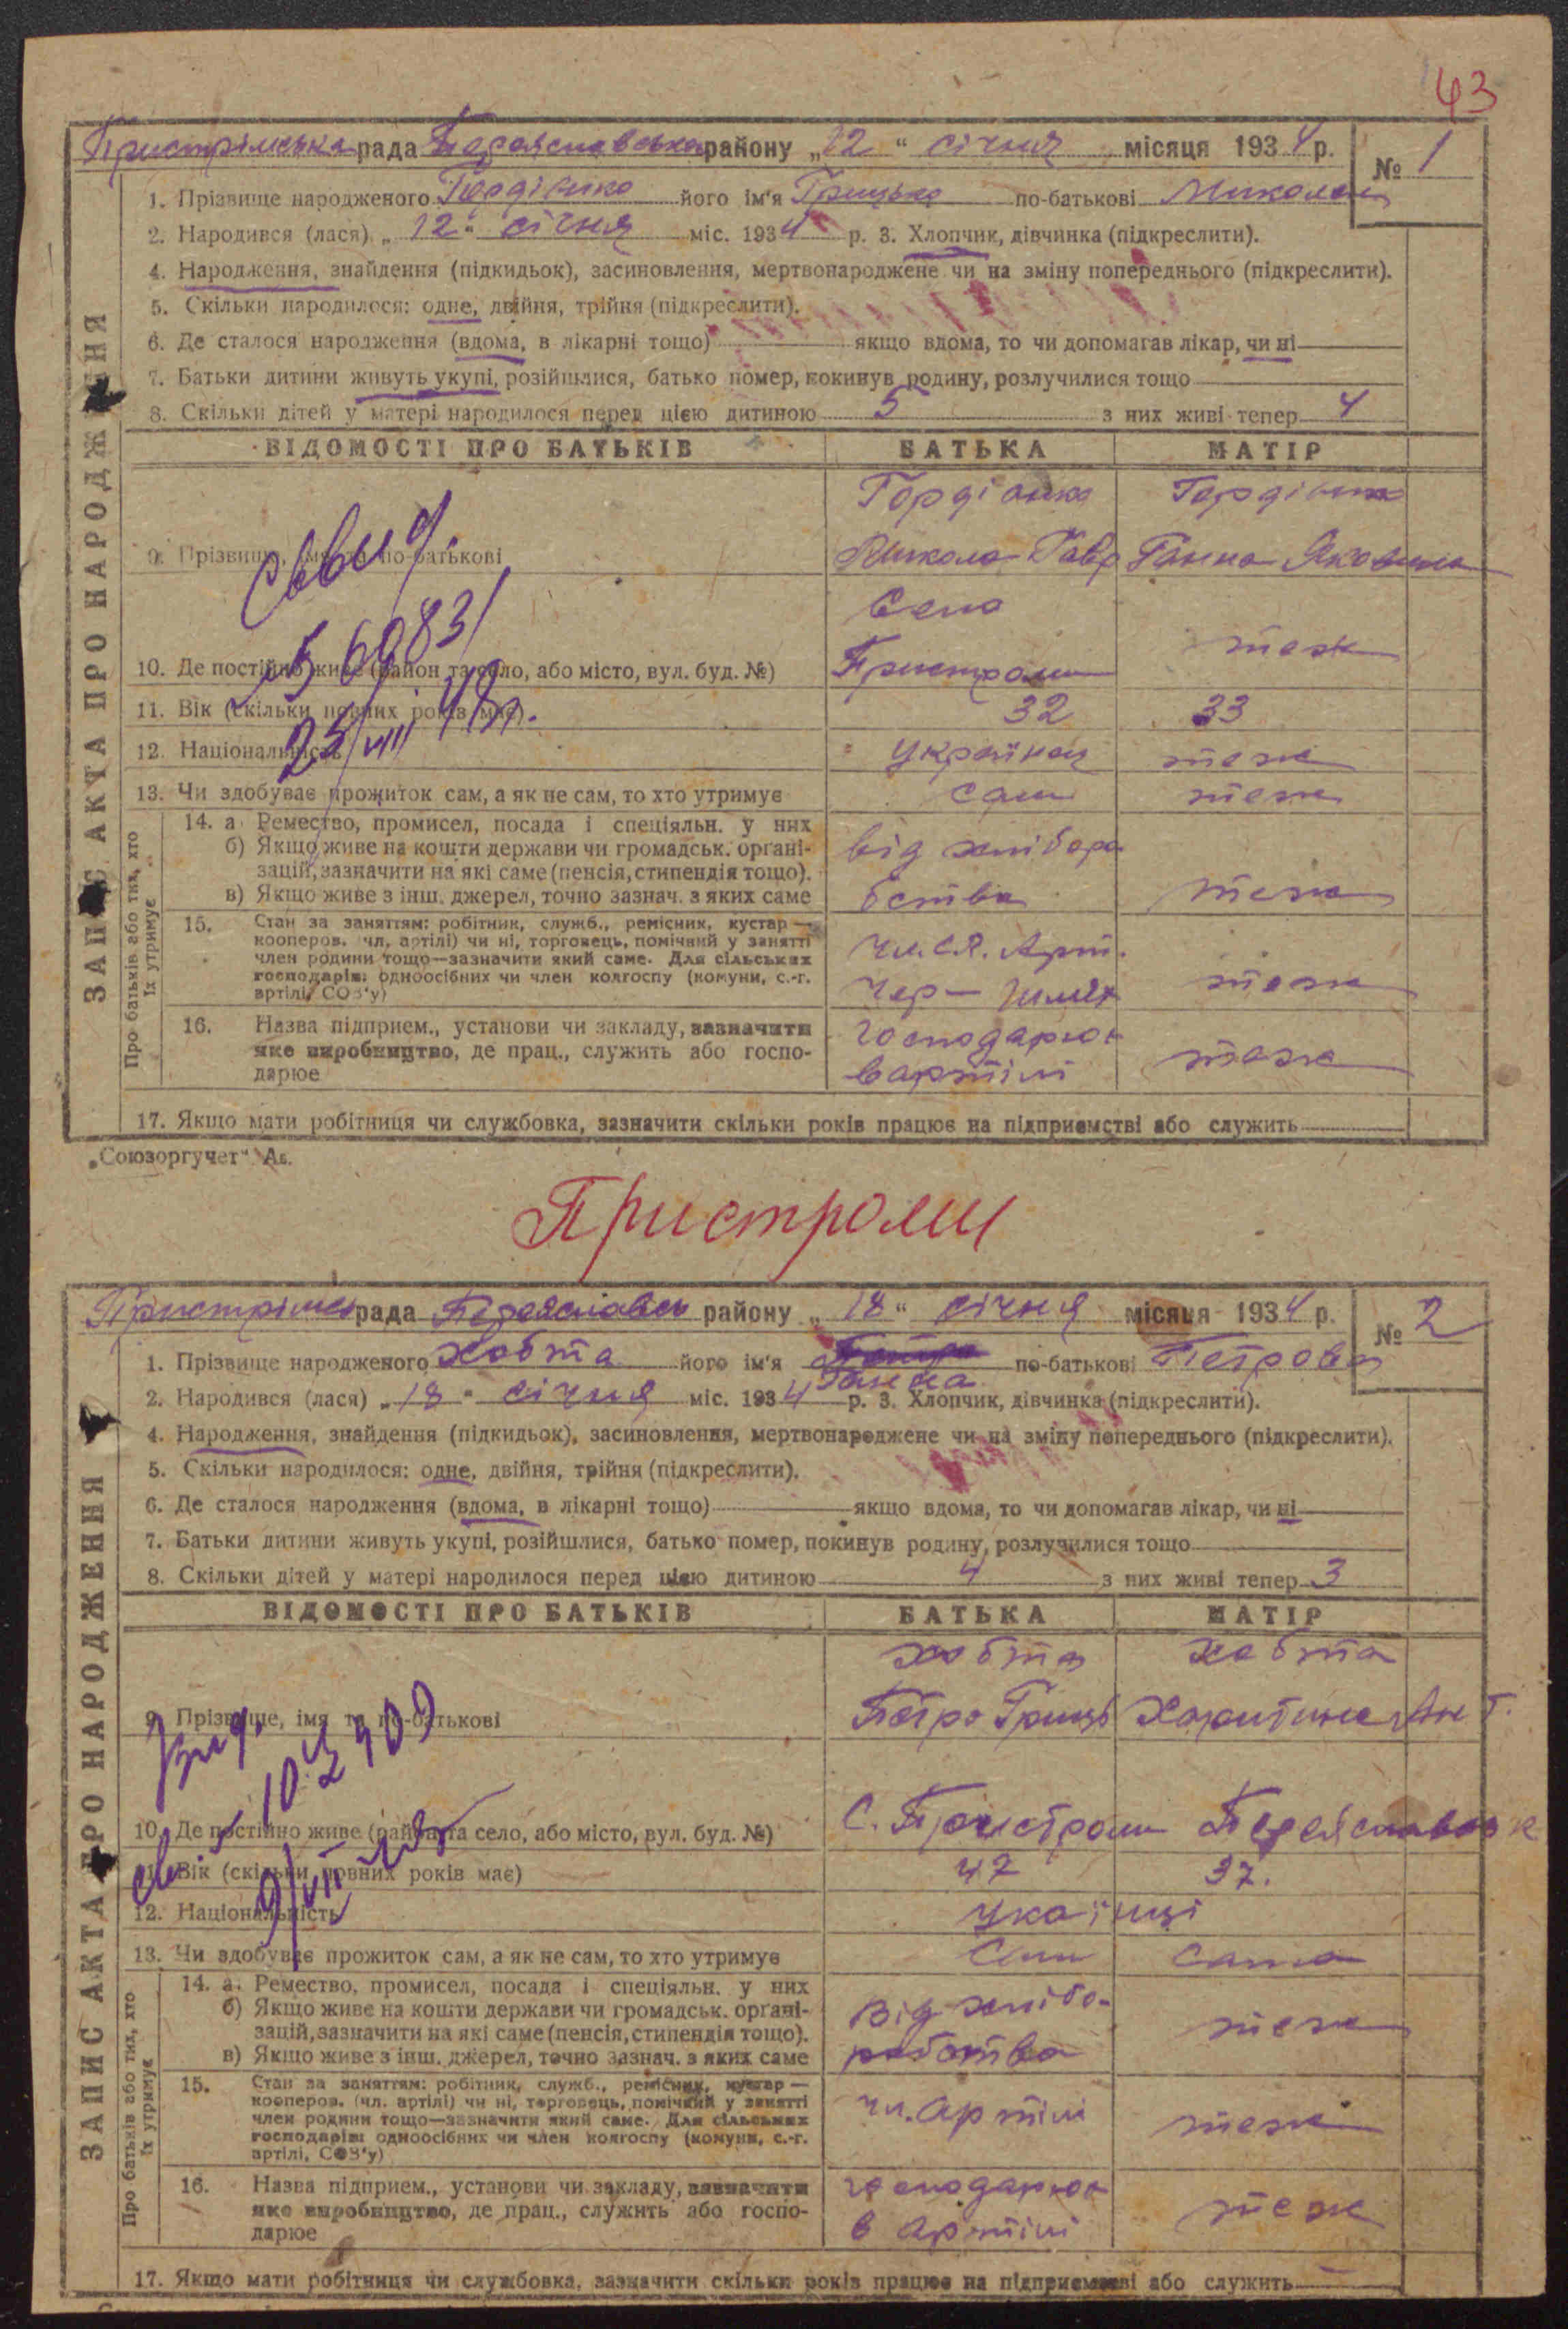 43
Пристрімська рада Переяславська району „12“ січня місяця 1934 р. № 1
1. Прізвище народженого Гордієнко його ім'я Грицько по-батькові Миколаи
2. Народився (лася) „12“ січня міс. 1934 р. 3. Хлопчик, дівчинка (підкреслити).
4. Народження, знайдення (підкидьок), засиновлення, мертвонароджене чи на зміну попереднього (підкреслити).
5. Скільки народилося: одне, двійня, трійня (підкреслити).
6. Де сталося народження (вдома, в лікарні тощо) якщо вдома, то чи допомагав лікар, чи ні
7. Батьки дитини живуть укупі, розійшлися, батько помер, кокинув родину, розлучилися тощо
8. Скільки дітей у матері народилося перед цією дитиною 5 з них живі тепер 4
ЗАПИС АКТА ПРО НАРОДЖЕННЯ
ВІДОМОСТІ ПРО БАТЬКІВ БАТЬКА МАТІР
Гордієнко Гордієнко
9. Прізвище, імя та по-батькові Микола Гавр Ганна Яковина
Село
10. Де постійно живе (район та село, або місто, вул. буд. №) Пристроми теж
11. Вік (скільки повних років має) 32 33
12. Національність українец теж
13. Чи здобуває прожиток сам, а як не сам, то хто утримує сам теж
Про батьків або тих, хто їх утримує
14. а Ремество, промисел, посада і спеціяльн. у них
б) Якщо живе на кошти держави чи громадськ. органі-
зацій, зазначити на які саме (пенсія, стипендія тощо).
в) Якщо живе з інш. джерел, точно зазнач. з яких саме
від хлібора
бства теж
15. Стан за заняттям: робітник, служб., ремісник, кустар —
кооперов. чл. артілі) чи ні, торговець, помічний у занятті
член родини тощо—зазначити який саме. Для сільських
господарів: одноосібних чи член колгоспу (комуни, с.-г.
артілі, СОЗ'у)
чл. С.Г. Арт.
Чер— Шлях теж
16. Назва підприєм., установи чи закладу, зазначити
яке виробництво, де прац., служить або госпо-
дарює
господарює
в артілі теж
17. Якщо мати робітниця чи службовка, зазначити скільки років працює на підприємстві або служить
„Союзоргучет“
Пристроми
Пристрімсь рада Переяславсь району „18“ січня місяця 1934 р. № 2
1. Прізвище народженого Хобта його ім'я Ганна по-батькові Петрова
2. Народився (лася) „18“ січня міс. 1934 р. 3. Хлопчик, дівчинка (підкреслити).
4. Народження, знайдення (підкидьок), засиновлення, мертвонароджене чи на зміну попереднього (підкреслити).
5. Скільки народилося: одне, двійня, трійня (підкреслити).
6. Де сталося народження (вдома, в лікарні тощо) якщо вдома, то чи допомагав лікар, чи ні
7. Батьки дитини живуть укупі, розійшлися, батько помер, покинув родину, розлучилися тощо
8. Скільки дітей у матері народилося перед цією дитиною 4 з них живі тепер 3
ЗАПИС АКТА ПРО НАРОДЖЕННЯ
ВІДОМОСТІ ПРО БАТЬКІВ БАТЬКА МАТІР
Хобта Хобта
9. Прізвище, імя та по-батькові Петро Гриць Харитина Ан Г.
10. Де постійно живе (район та село, або місто, вул. буд. №) С. Пристроми Переяславськ
11. Вік (скільки повних років має) 47 37.
12. Національність українці
13. Чи здобуває прожиток сам, а як не сам, то хто утримує Сам сама
Про батьків або тих, хто їх утримує
14. а. Ремество, промисел, посада і спеціяльн. у них
б) Якщо живе на кошти держави чи громадськ. органі-
зацій, зазначити на які саме (пенсія, стипендія тощо).
в) Якщо живе з інш. джерел, точно зазнач. з яких саме
від хлібо-
робства теж
15. Стан за заняттям: робітник, служб., ремісник, кустар —
кооперов. (чл. артілі) чи ні, торговець, помічний у занятті
член родини тощо—зазначити який саме. Для сільських
господарів: одноосібних чи член колгоспу (комуни, с.-г.
артілі, СОЗ'у)
чл. артілі теж
16. Назва підприєм., установи чи закладу, зазначити
яке виробництво, де прац., служить або госпо-
дарює
господарює
в артілі теж
17. Якщо мати робітниця чи службовка, зазначити скільки років працює на підприємстві або служить